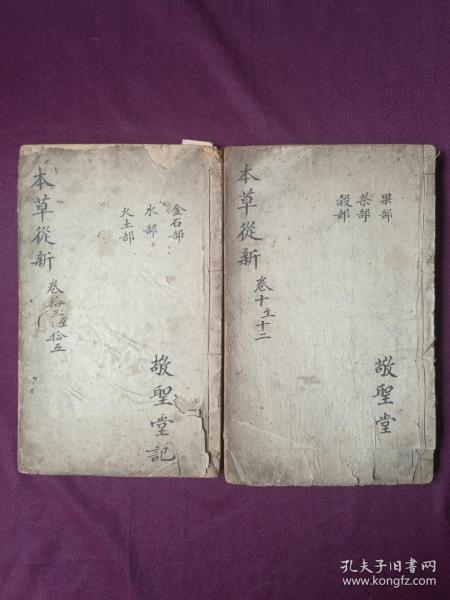 本草從新
卷拾三至拾五
金石部
水部
火土部
敬聖堂記
本草從新
卷十至十二
果部
菜部
穀部
敬聖堂
孔夫子旧书网
www.kongfz.com